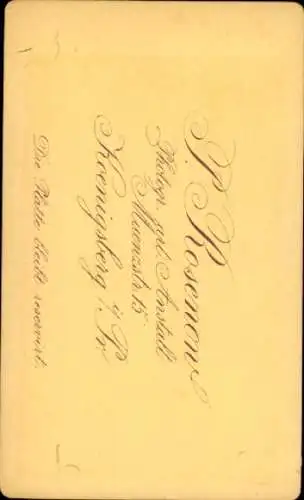 P. Rosenow
Photogr. art. Anstalt
Muenzstr. 15.
Koenigsberg i/Pr.
Die Platte bleibt reservirt.